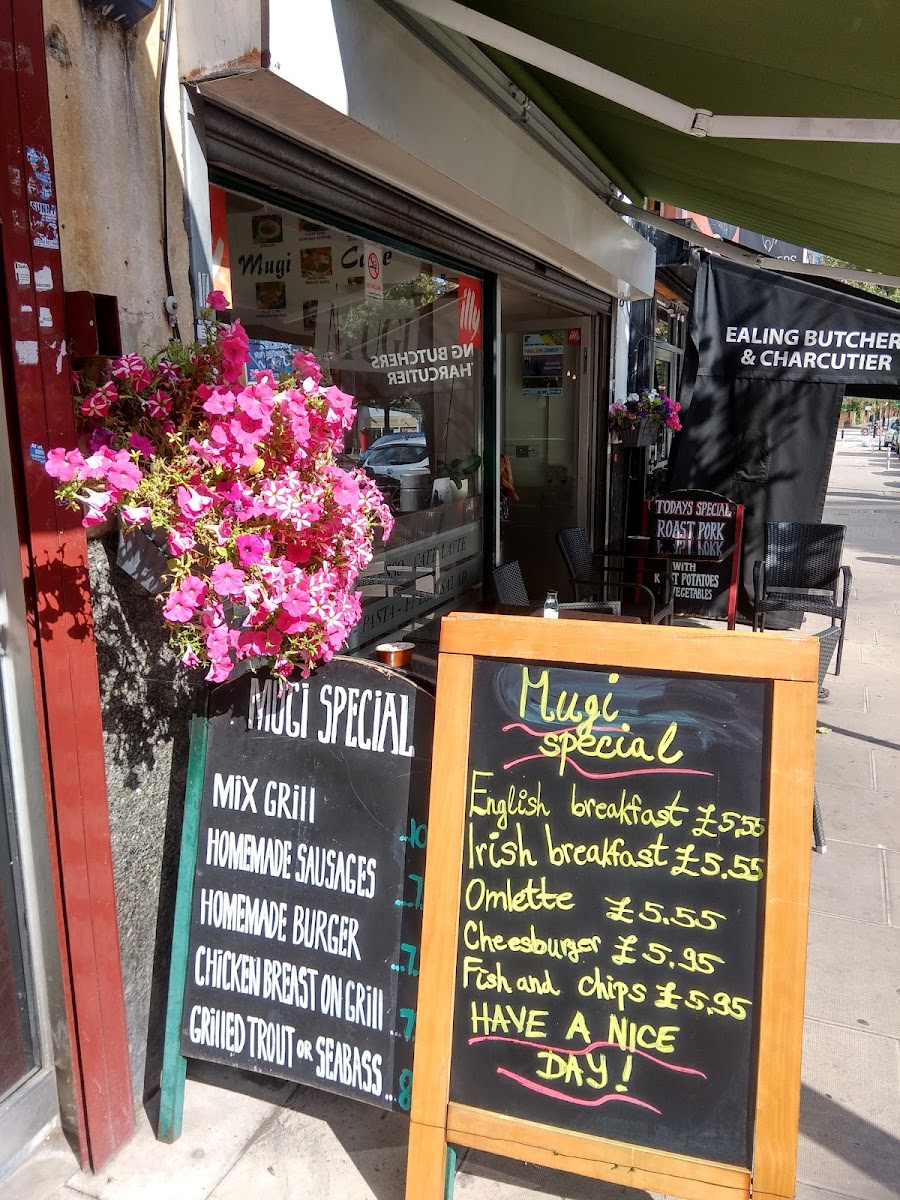 Mugi Cafe
illy
NG BUTCHERS
HARCUTIER
illy
EALING BUTCHER
& CHARCUTIER
TODAYS SPECIAL
ROAST PORK
WITH
POTATOES
VEGETABLES
CAFE LATTE
PASTA - SALAD
MUGI SPECIAL
MIX GRill ...10
HOMEMADE SAUSAGES ...7.
HOMEMADE BURGER ...7.
CHICKEN BREAST ON GRill ...7
GRILLED TROUT OR SEABASS ...8
Mugi
special
English breakfast £5,55
Irish breakfast £5.55
Omlette £5.55
Cheesburger £5.95
Fish and chips £5,95
HAVE A NICE
DAY!